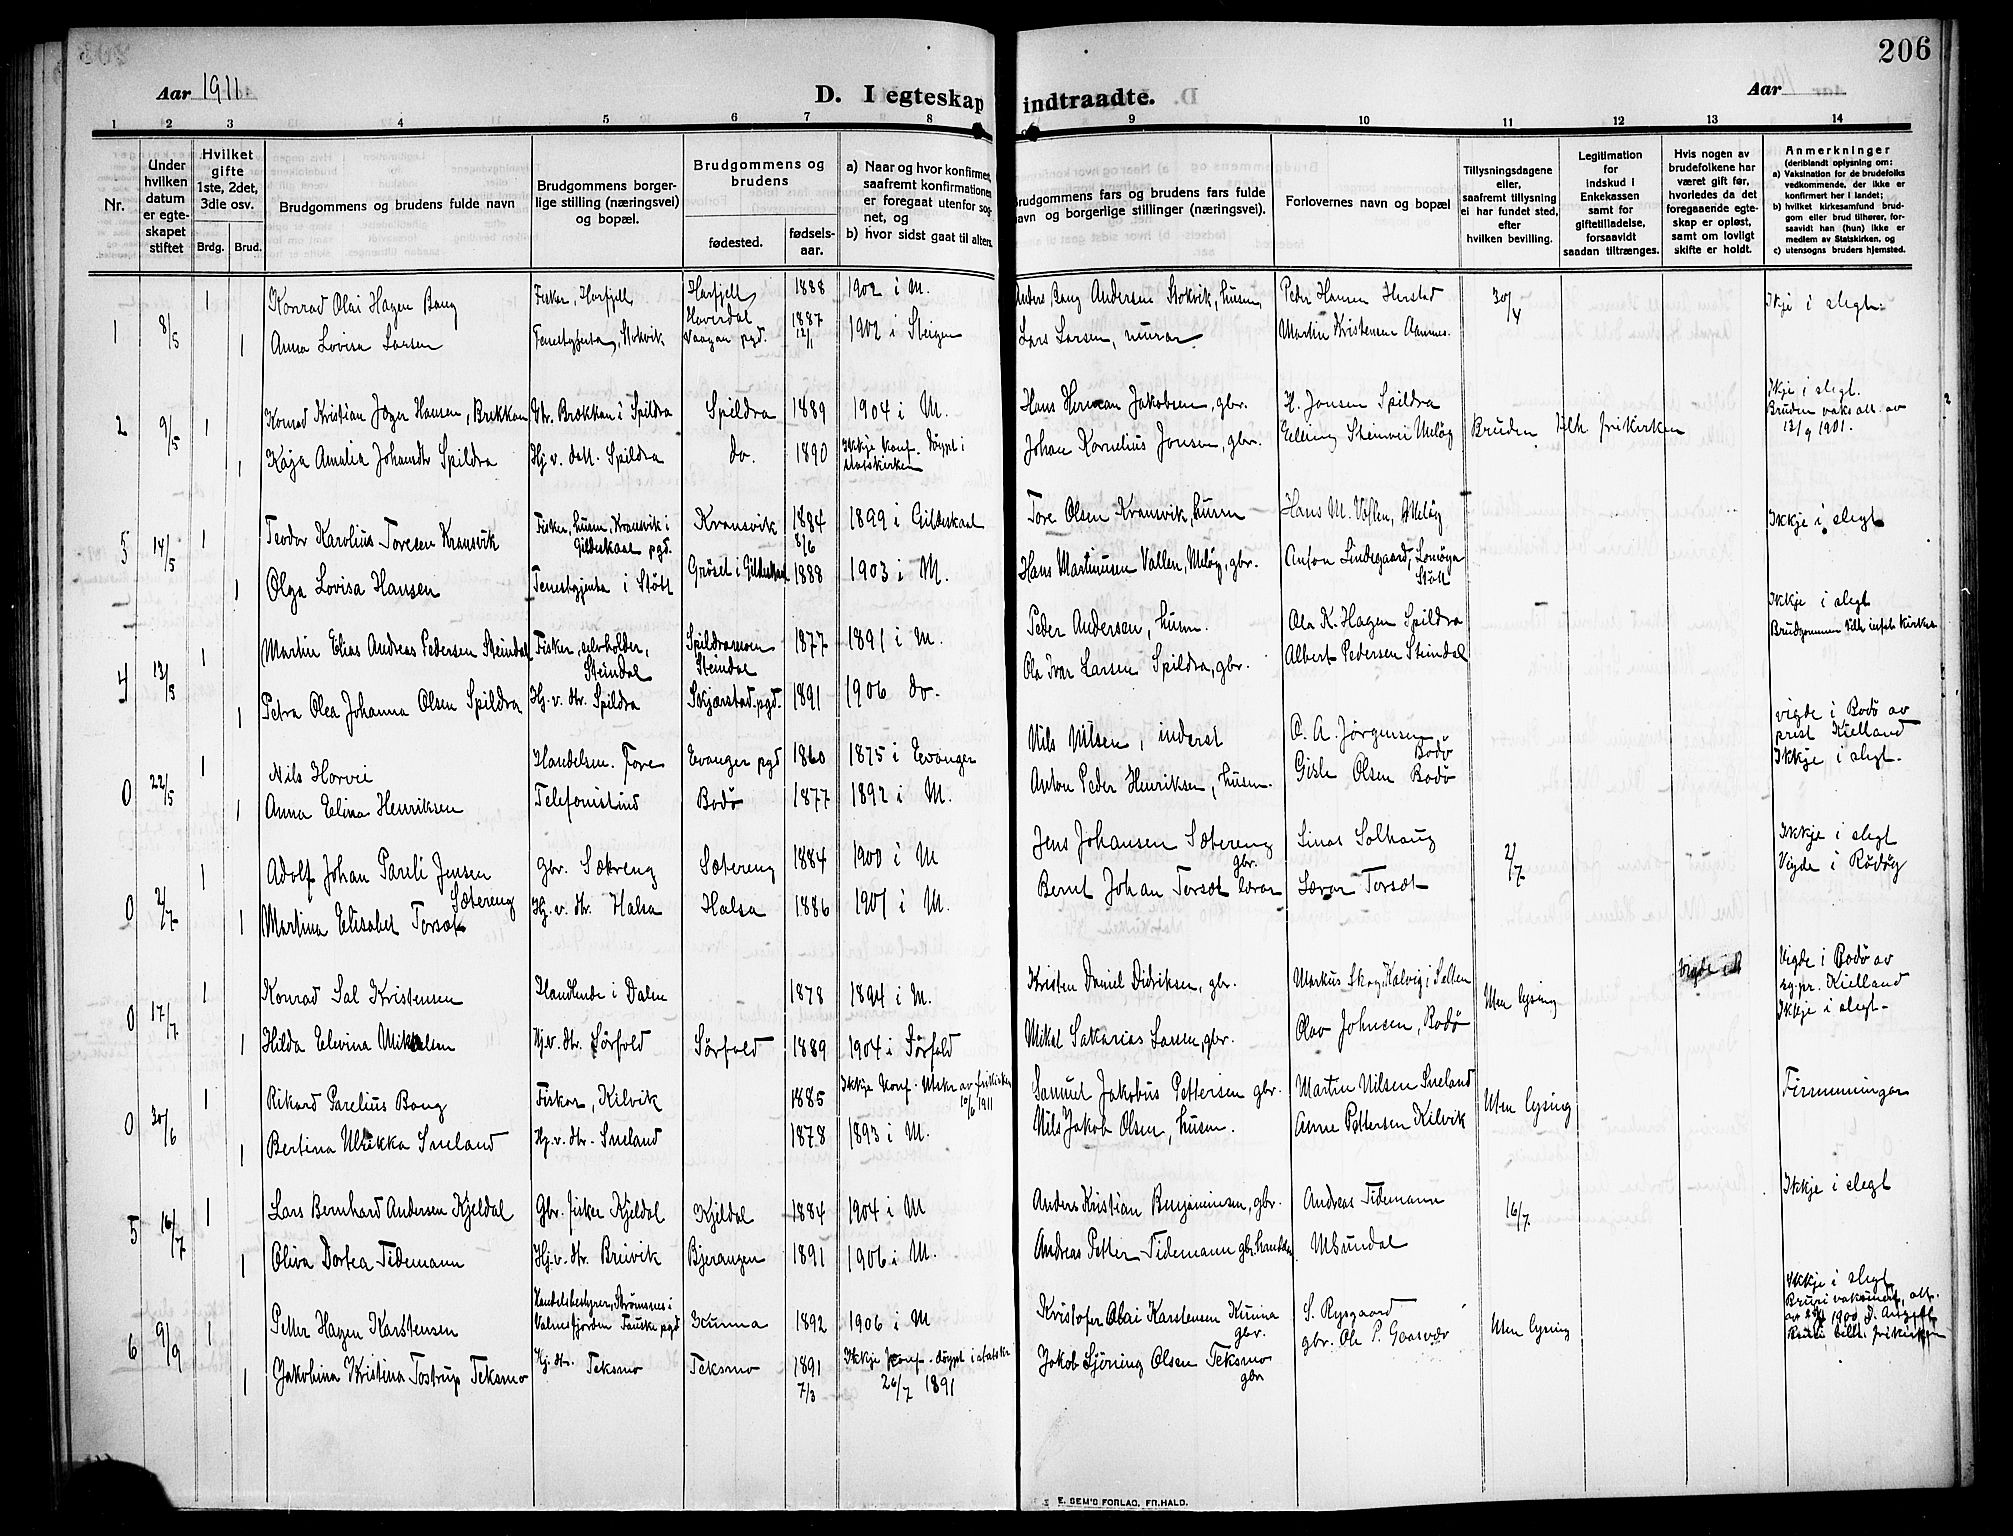 206
Aar 1911
D. I egteskap indtraadte.
Aar
1 2 3 4 5 6 7 8 9 10 11 12 13 14
Nr.
Under hvilken datum er egteskapet stiftet
Hvilket gifte 1ste, 2det, 3die osv.
Brdg. Brud.
Brudgommens og brudens fulde navn
Brudgommens borgerlige stilling (næringsvei) og bopæl.
Brudgommens og brudens
fødested.
fødselsaar.
a) Naar og hvor konfirmert, saafremt konfirmationen er foregaat utenfor sognet, og
b) hvor sidst gaat til alters.
Brudgommens fars og brudens fars fulde navn og borgerlige stillinger (næringsvei).
Forlovernes navn og bopæl
Tillysningsdagene eller, saafremt tillysning ei har fundet sted, efter hvilken bevilling.
Legitimation for indskud i Enkekassen samt for giftetilladelse, forsaavidt saadan tiltrænges.
Hvis nogen av brudefolkene har været gift før, hvorledes da det foregaaende egteskap er opløst, samt om lovligt skifte er holdt.
Anmerkninger
(deriblandt oplysning om:
a) Vaksination for de brudefolks vedkommende, der ikke er konfirmert her i landet;
b) hvilket kirkesamfund brudgom eller brud tilhører, forsaavidt han (hun) ikke er medlem av Statskirken, og
c) utensogns bruders hjemsted.
1 8/5 1 Konrad Olai Hagen Bang Fisker, Horfjell Horfjell 1888 1902 i M. Anders Bang Andersen Stokvik, husm. Peder Hansen Herstad 30/4 Ikje i slegt.
1 Anna Lovisa Larsen Tenestgjenta, Stokvik Haverdal Vaagan pgd. 1887 12/1 1902 i Steigen Lars Larsen, murar Martin Kristensen Aamnes.
2 9/5 1 Konrad Kristian Jæger Hansen, Brekkan Str. Brækkan i Spildra Spildra 1889 1904 i M. Hans Herman Jakobsen, gbr. H. Jonsen Spildra Bruden tilh. frikirken Ikje i slegt. Bruden vaks att. av 12/9 1901.
1 Kaja Amalia Johansdtr Spildra Hj. v. datt. Spildra do. 1890 Ikkje konf. døypt i statskirken Johan Kornelius Jonsen, gbr. Elling Steinvei Meløy
5 14/5 1 Teodor Karolius Toresen Kransvik Fisker, husm, Kransvik i Gildeskaal pgd. Kransvik 1884 8/6 1899 i Gildeskaal Tore Olsen Kransvik, husm Hans M. Vallen, Meløy Ikkje i slegt
1 Olga Lovisa Hansen Tenestgjenta i Støtt Grøset i Gildeskaal 1888 1903 i M. Hans Martinusen Vallen, Meløy, gbr. Anton Lindegaard, Støtt
4 13/5 1 Martin Elias Andreas Pedersen Steindal Fisker, selvholder, Steindal Spildramoen Steindal 1877 1891 i M. Peder Andersen, husm. Ola K. Hagen Spildra Ikkje i slegt Brudgommen
1 Petra Olea Johanna Olsen Spildra Hj. v. dtr. Spildra Skjærstad pgd. 1891 1906 do. Ola Ivar Larsen Spildra, gbr. Albert Pedersen Steindal
0 22/5 1 Nils Horvei Handelsm. Fore Evanger pgd 1860 1875 i Evanger Nils Nilsen, inderst O. A. Jørgensen Bodø vigde i Bodø av prest Kielland Ikkje i slegt.
1 Anna Elina Henriksen Telefonistind Bodø 1877 1892 i M. Anton Peder Henriksen, husm. Gisle Olsen Bodø
0 2/7 1 Adolf Johan Pauli Jensen Sætereng gbr. Sætreng Sætereng 1884 1900 i M Jens Johansen Sætereng gbr. Sinas Solhaug 2/7 Ikkje i slegt Vigde i Rødøy
1 Martina Elisabet Torsæt Hj. v. dtr. Halsa Halsa 1886 1901 i M. Bernt Johan Torsæt lærar Lærar Torsæt
0 17/7 1 Konrad Sal Kristensen Handlende i Dalen 1878 1894 i M. Kristen Daniel Didriksen, gbr. Markus Skog, Kalvig i Salten Uten lysing Vigde i Bodø av sg. pr. Kielland Ikkje i slegt.
1 Hilda Elevina Mikalsen Hj. v. dtr. Sørfold Sørfold 1889 1904 i Sørfold Mikal Sakarias Larsen, gbr. Olav Johnsen, Bodø
0 30/6 1 Rikard Parelius Bang Fiskar, Kilvik 1885 Ikkje konf. Utskr av frikirken 10/6 1911 Samuel Jakobus Pettersen gbr. Martin Nilsen Sneland Uten lysing Firmenningar
1 Bertina Ulrikka Sneland Hj. v. dtr. Sneland 1878 1893 i M. Nils Jakob Olsen, husm. Anne Pettersen Kilvik
5 16/7 1 Lars Bernhard Andersen Kjeldal Gbr. fisker Kjeldal Kjeldal 1884 1904 i M Anders Kristian Benjaminsen, gbr. Andreas Tidemann 16/7 Ikkje i slegt
1 Oliva Dortea Tidemann Hj. v. dtr. Breivik Bjerangen 1891 1906 i M. Andreas Petter Tidemann gbr. M Sundal
6 9/9 1 Peter Hagen Karstensen Handelsbestyrer, Strømsnes i Valnesfjorden Fauske pgd Kunna 1892 1906 i M Kristofer Olai Karstensen Kunna gbr. S. Rysgaard Uten lysing Ikkje i slegt
1 Jakobina Kristina Tostrup Teksmo Hj. dtr. Teksmo Teksmo 1891 7/3 Ikkje konf. døypt i statskr 26/7 1891 Jakob Sjöning Olsen Teksmo gbr gbr. Ole P. Gaasvær
E. SEM'S FORLAG, FR.HALD.